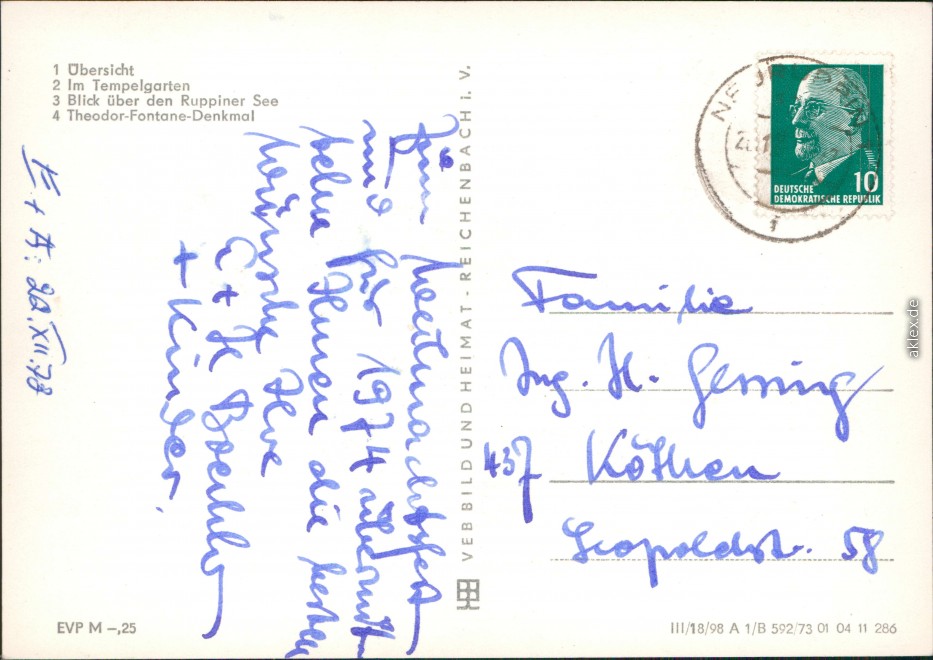 1 Übersicht
2 Im Tempelgarten
3 Blick über den Ruppiner See
4 Theodor-Fontane-Denkmal
E + A: 22.XII.73
Zum Weihnachtsfest
und für 1974 übermitteln
Ihnen die besten
Wünsche Ihre
E + H
+ Kinder.
VEB BILD UND HEIMAT - REICHENBACH i. V.
DEUTSCHE
DEMOKRATISCHE REPUBLIK
10
Familie
Ing. H. Gerning
437 Köthen
Leopoldstr. 58
aklex.de
EVP M –,25
III/18/98 A 1/B 592/73 01 04 11 286